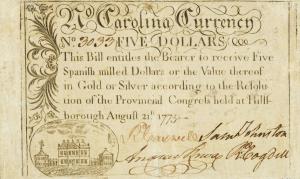 No. Carolina Currency
No. 3033 FIVE DOLLARS
This Bill entitles the Bearer to receive Five
Spanish milled Dollars or the Value thereof
in Gold or Silver according to the Resolu-
tion of the Provincial Congress held at Hills-
borough August 21st. 1775
Saml Johnston
Rd Cogdell